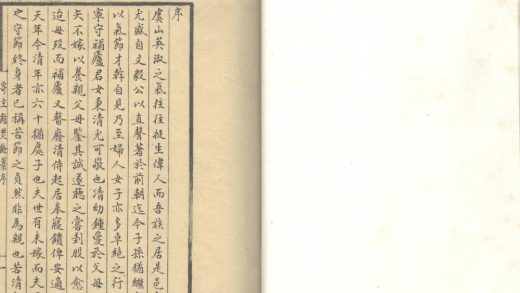 序
虞山英淑之氣往往挺生偉人而吾族之居是邑
尤盛自文毅公以直聲著於前朝迄今子孫猶繼
以氣節才幹自見乃至婦人女子亦多卓絶之行
寧守補廬君女秉清尤可敬也清幼鍾愛於父母
矢不嫁以養親父母鑒其誠遂聽之嘗刲股以愈
迨母歿而補廬又瞽廢清侍起居奉寢饋俾安適
天年今清年亦六十猶處子也夫世有未嫁而夫
之守節終身者已稱苦節之貞然非為親也若清
寄生館焚餘藳序 一